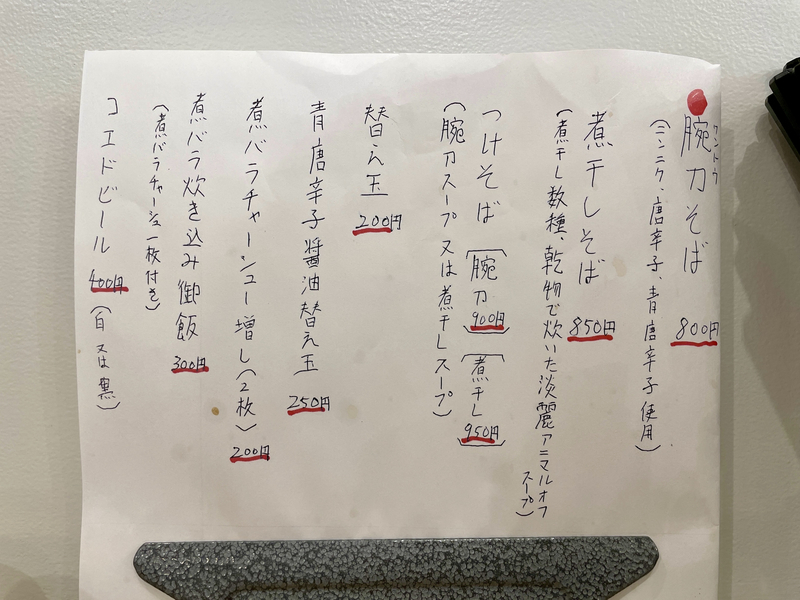 腕刀そば 800円
ワントウ
(ニンニク、唐辛子、青唐辛子使用)
煮干しそば 850円
(煮干し数種、乾物で炊いた淡麗アニマルオフ
スープ)
つけそば [腕刀 900円] [煮干し 950円]
(腕刀スープ 又は煮干しスープ)
替え玉 200円
青唐辛子醤油替え玉 250円
煮バラチャーシュー増し(2枚) 200円
煮バラ炊き込み御飯 300円
(煮バラチャーシュー枚付き)
コエドビール 400円 (白又は黒)